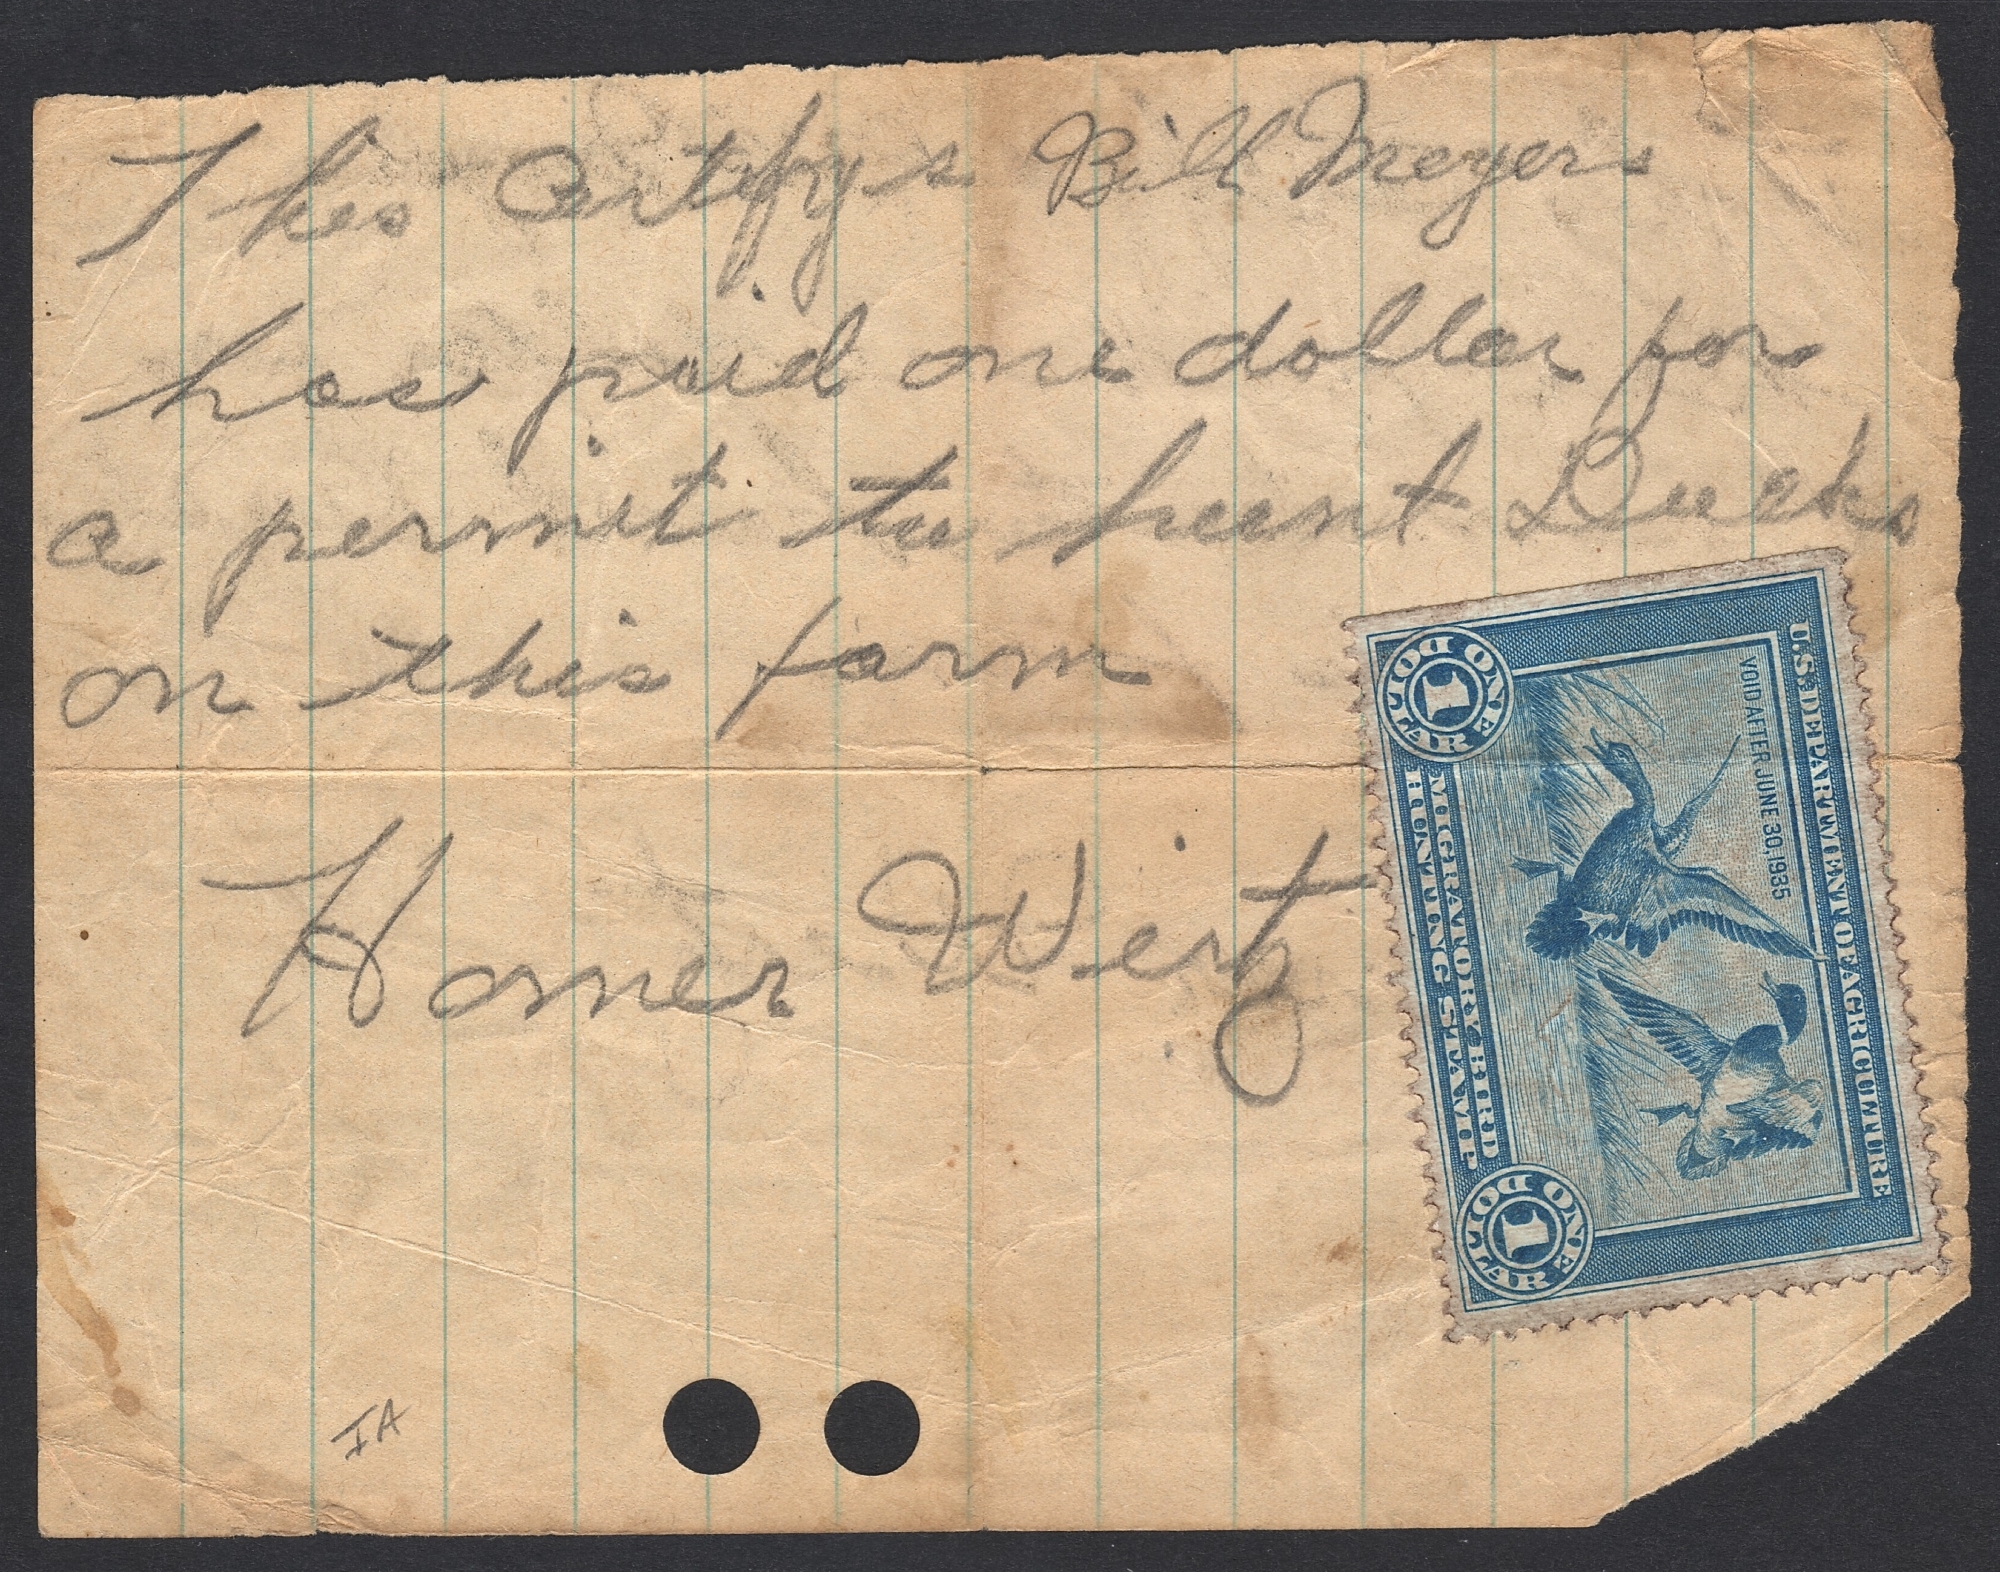 This Certifys Bill Meyers
has paid one dollar for
a permit to hunt Ducks
on this farm
Homer Wirtz
IA
U.S. DEPARTMENT OF AGRICULTURE
VOID AFTER JUNE 30, 1935
MIGRATORY BIRD
HUNTING STAMP
ONE DOLLAR
1
ONE DOLLAR
1